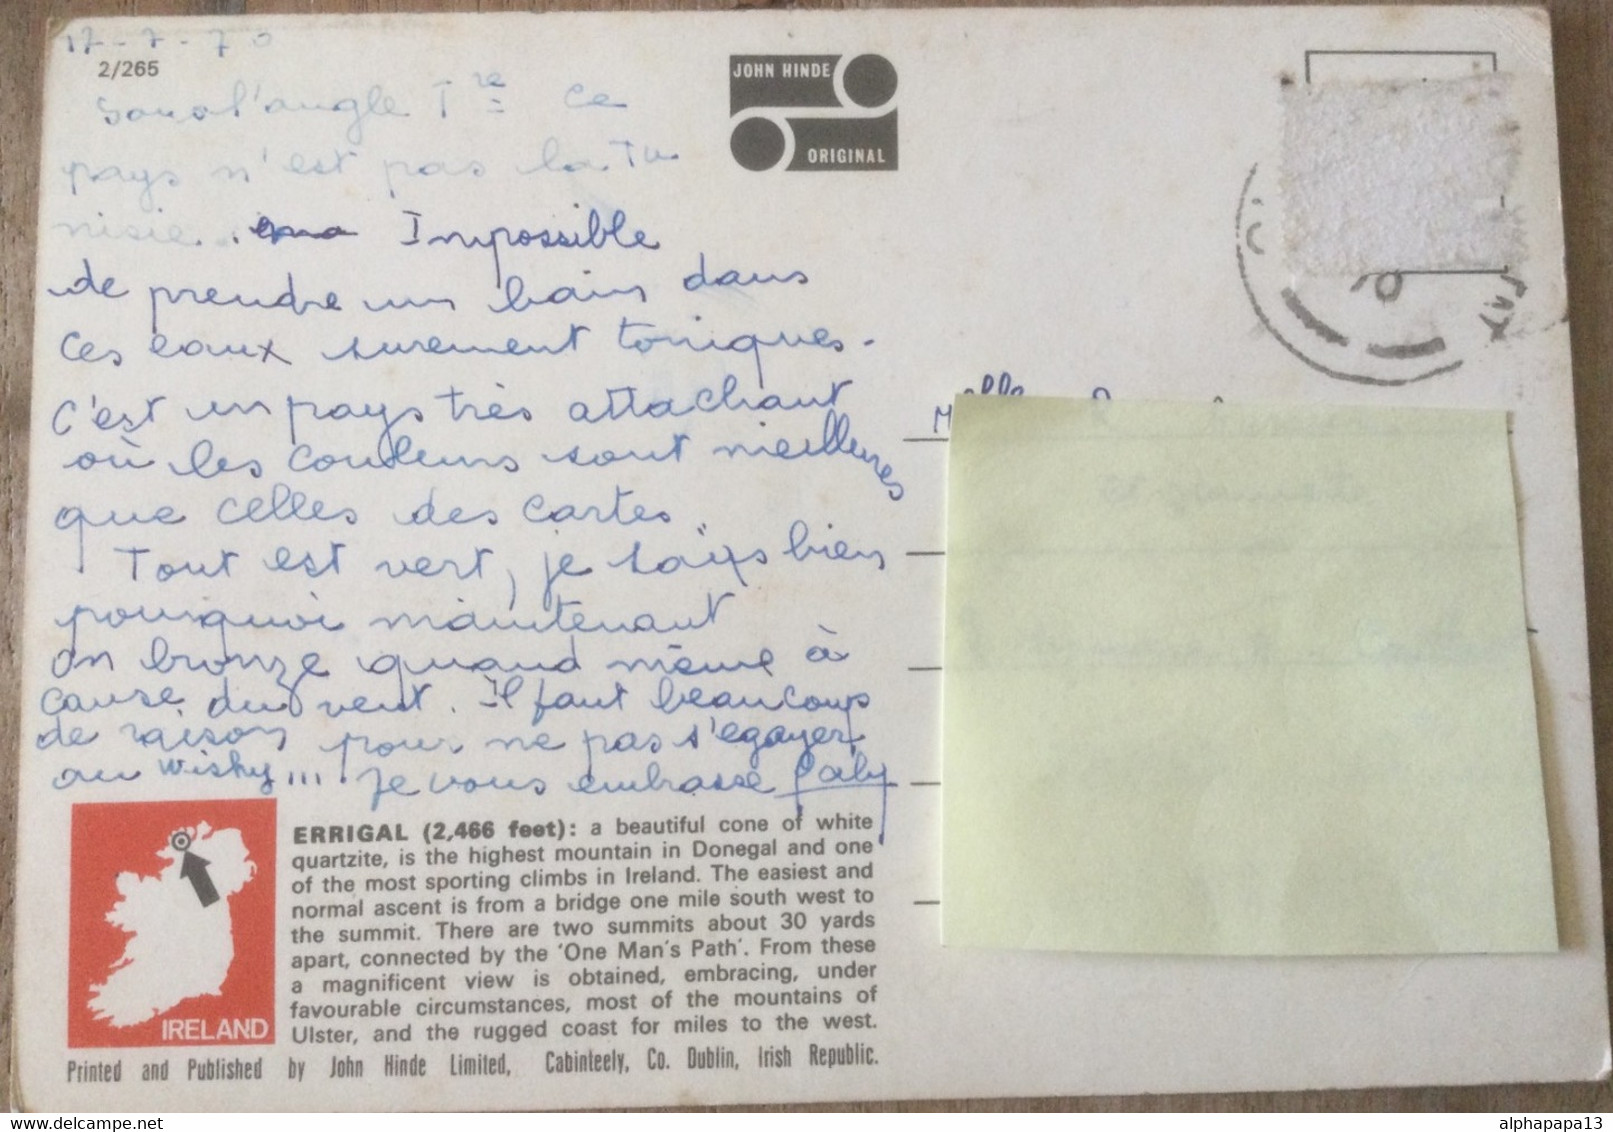 17-7-70
2/265
Sous l'angle Tre ce
pays n'est pas la Tu
nisie. Impossible
de prendre un bain dans
ces eaux surement toniques.
C'est un pays très attachant
où les couleurs sont meilleures
que celles des cartes.
Tout est vert, je sais bien
pourquoi maintenant
on bronze quand même à
cause du vent. Il faut beaucoup
de raison pour ne pas s'egayer
au wisky... Je vous embrasse
JOHN HINDE
ORIGINAL
Melle
ERRIGAL (2,466 feet): a beautiful cone of white
quartzite, is the highest mountain in Donegal and one
of the most sporting climbs in Ireland. The easiest and
normal ascent is from a bridge one mile south west to
the summit. There are two summits about 30 yards
apart, connected by the 'One Man's Path'. From these
a magnificent view is obtained, embracing, under
favourable circumstances, most of the mountains of
Ulster, and the rugged coast for miles to the west.
IRELAND
Printed and Published by John Hinde Limited, Cabinteely, Co. Dublin, Irish Republic.
alphapapa13